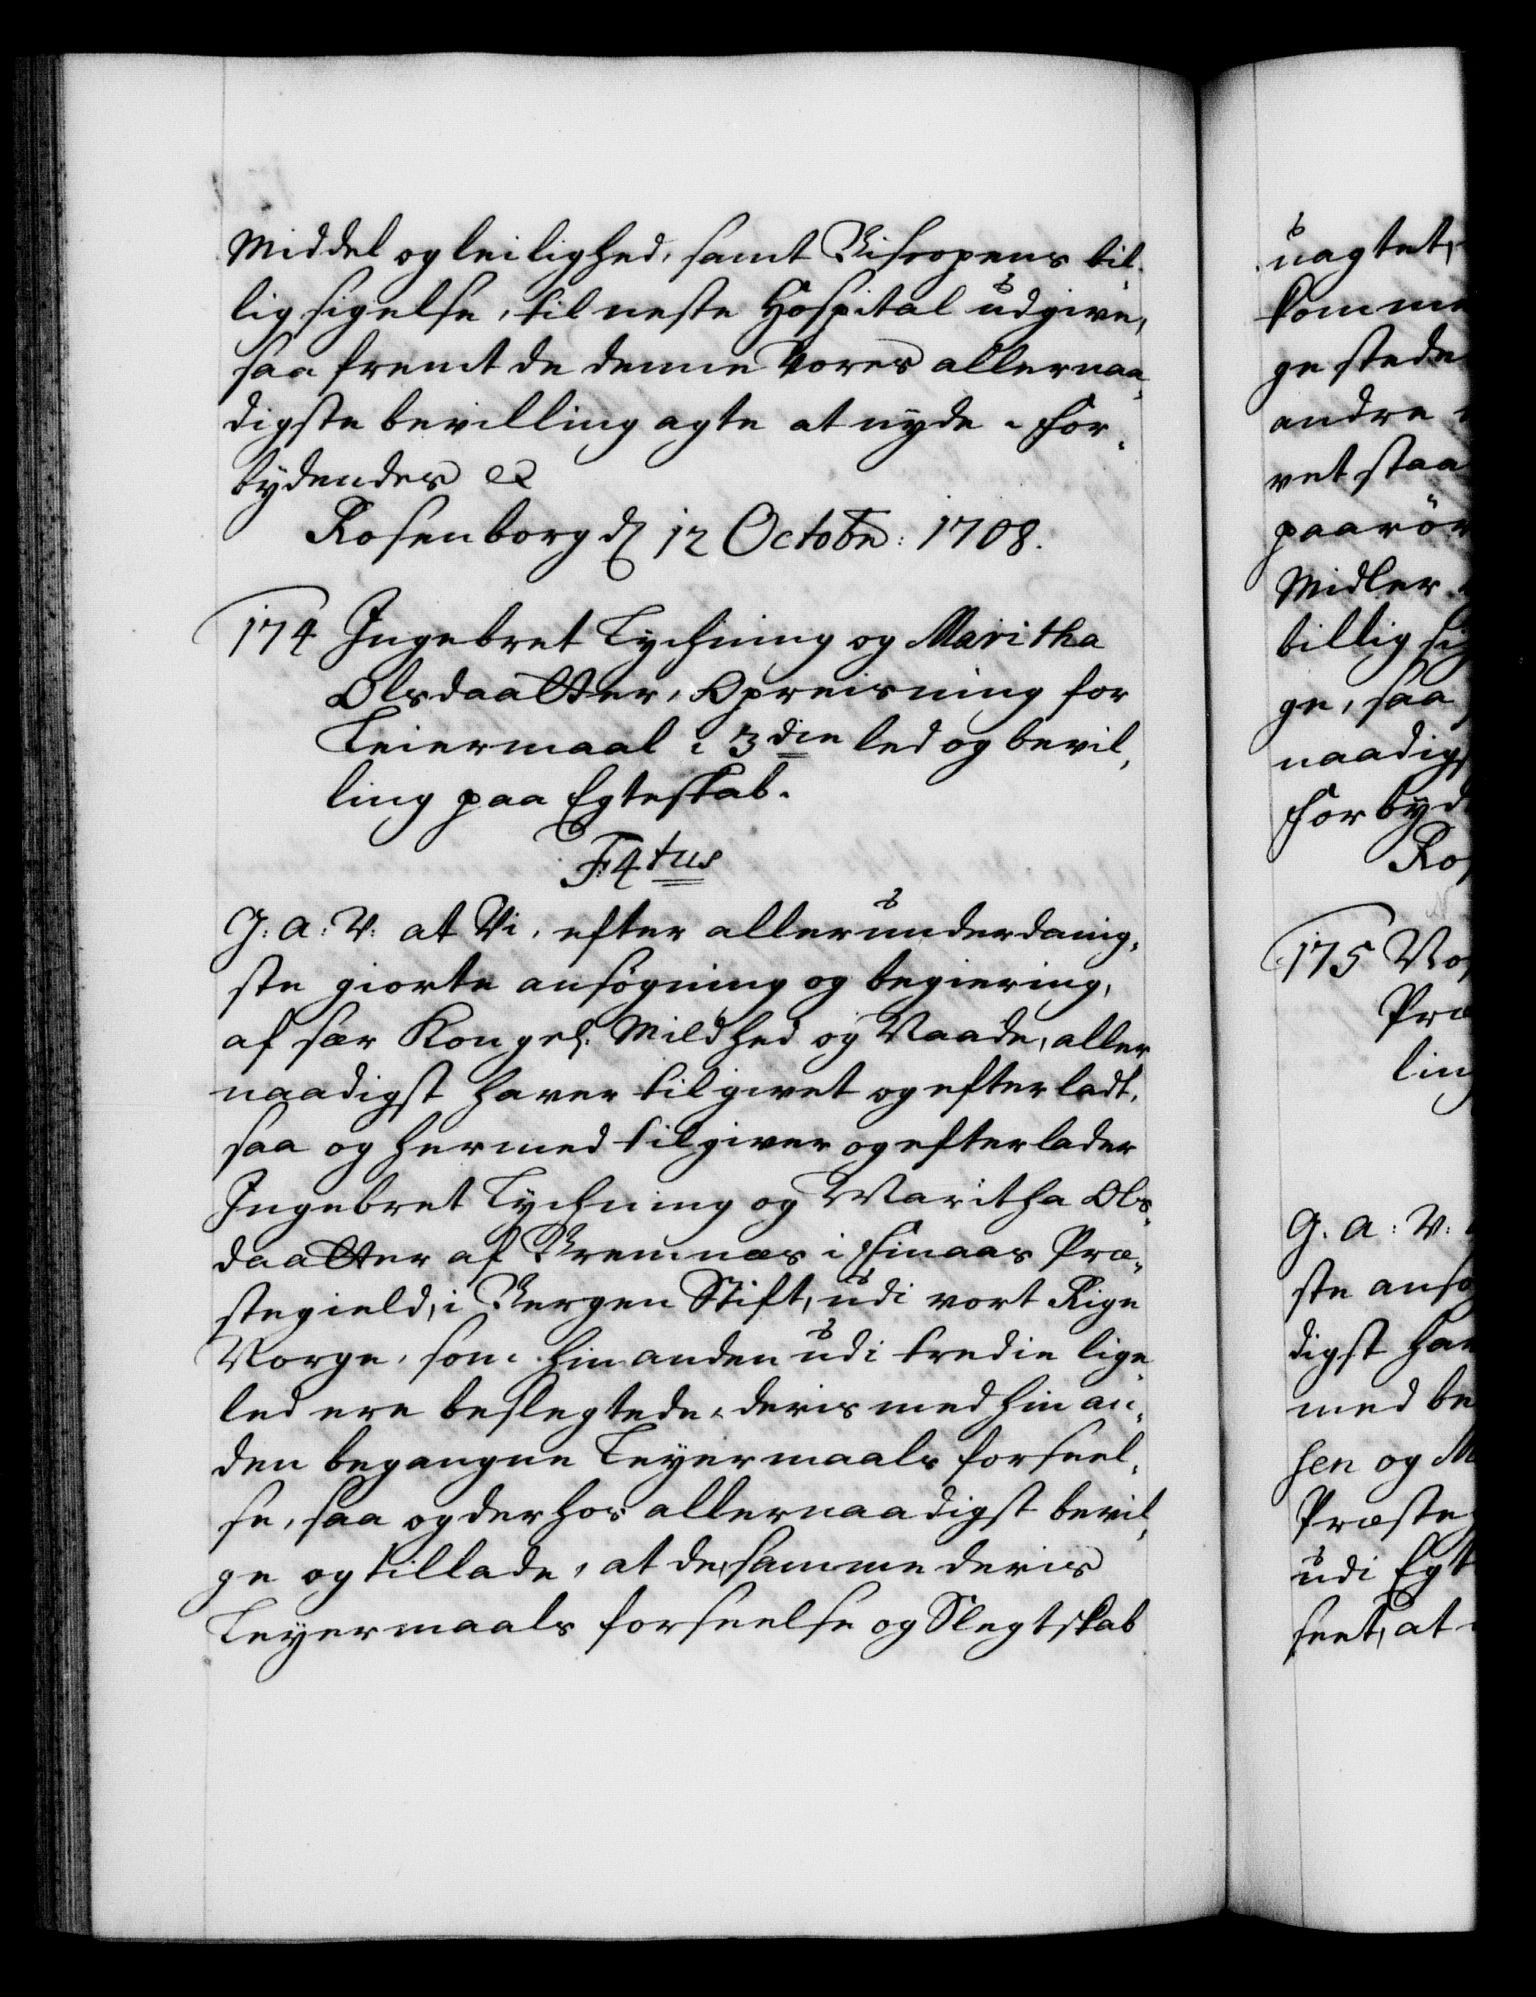 Middel og leilighed, samt Biscopens til„
lig sigelse, til neste Hospital udgive,
saa fremt de denne Vores allernaa„
digste bevilling agte at nyde. For„
bydendes &c
Rosenborg d. 12 Octobr: 1708.
174 Ingebret Tychning og Maritha
Olsdaatter, Opreisning for
Leiermaal i 3die led og bevil„
ling paa Egteskab.
F: 4tus
G: A: V: at Vi, efter allerunderdanig„
ste giorte ansøgning og begiering,
af sær Kongel: Mildhed og Naade, aller
naadigst haver tilgivet og efterladt,
saa og hermed tilgiver og efterlader
Ingebret Tychning og Maritha Ols„
daatter af Bremnæs i Finaas Præ„
stegield, i Bergen Stift, udi vort Rige
Norge, som hinanden udi tredie lige
led ere beslegtede, deris med hinan„
den begangne Leyermaals forseel„
se, saa og derhos allernaadigst bevil„
ge og tillade, at de, samme deris
Leyermaals forseelse og Slegtskab
uagtet,
komme
ge stede
andre
ret staa
paarör
Midler
billig sig
ge, saa
naadigs
Forbyd
Ros
175 
Præ
ling
G. A: V:
ste ansø
digst hav
med be
sen og M
Præste
udi Egt
seet, at